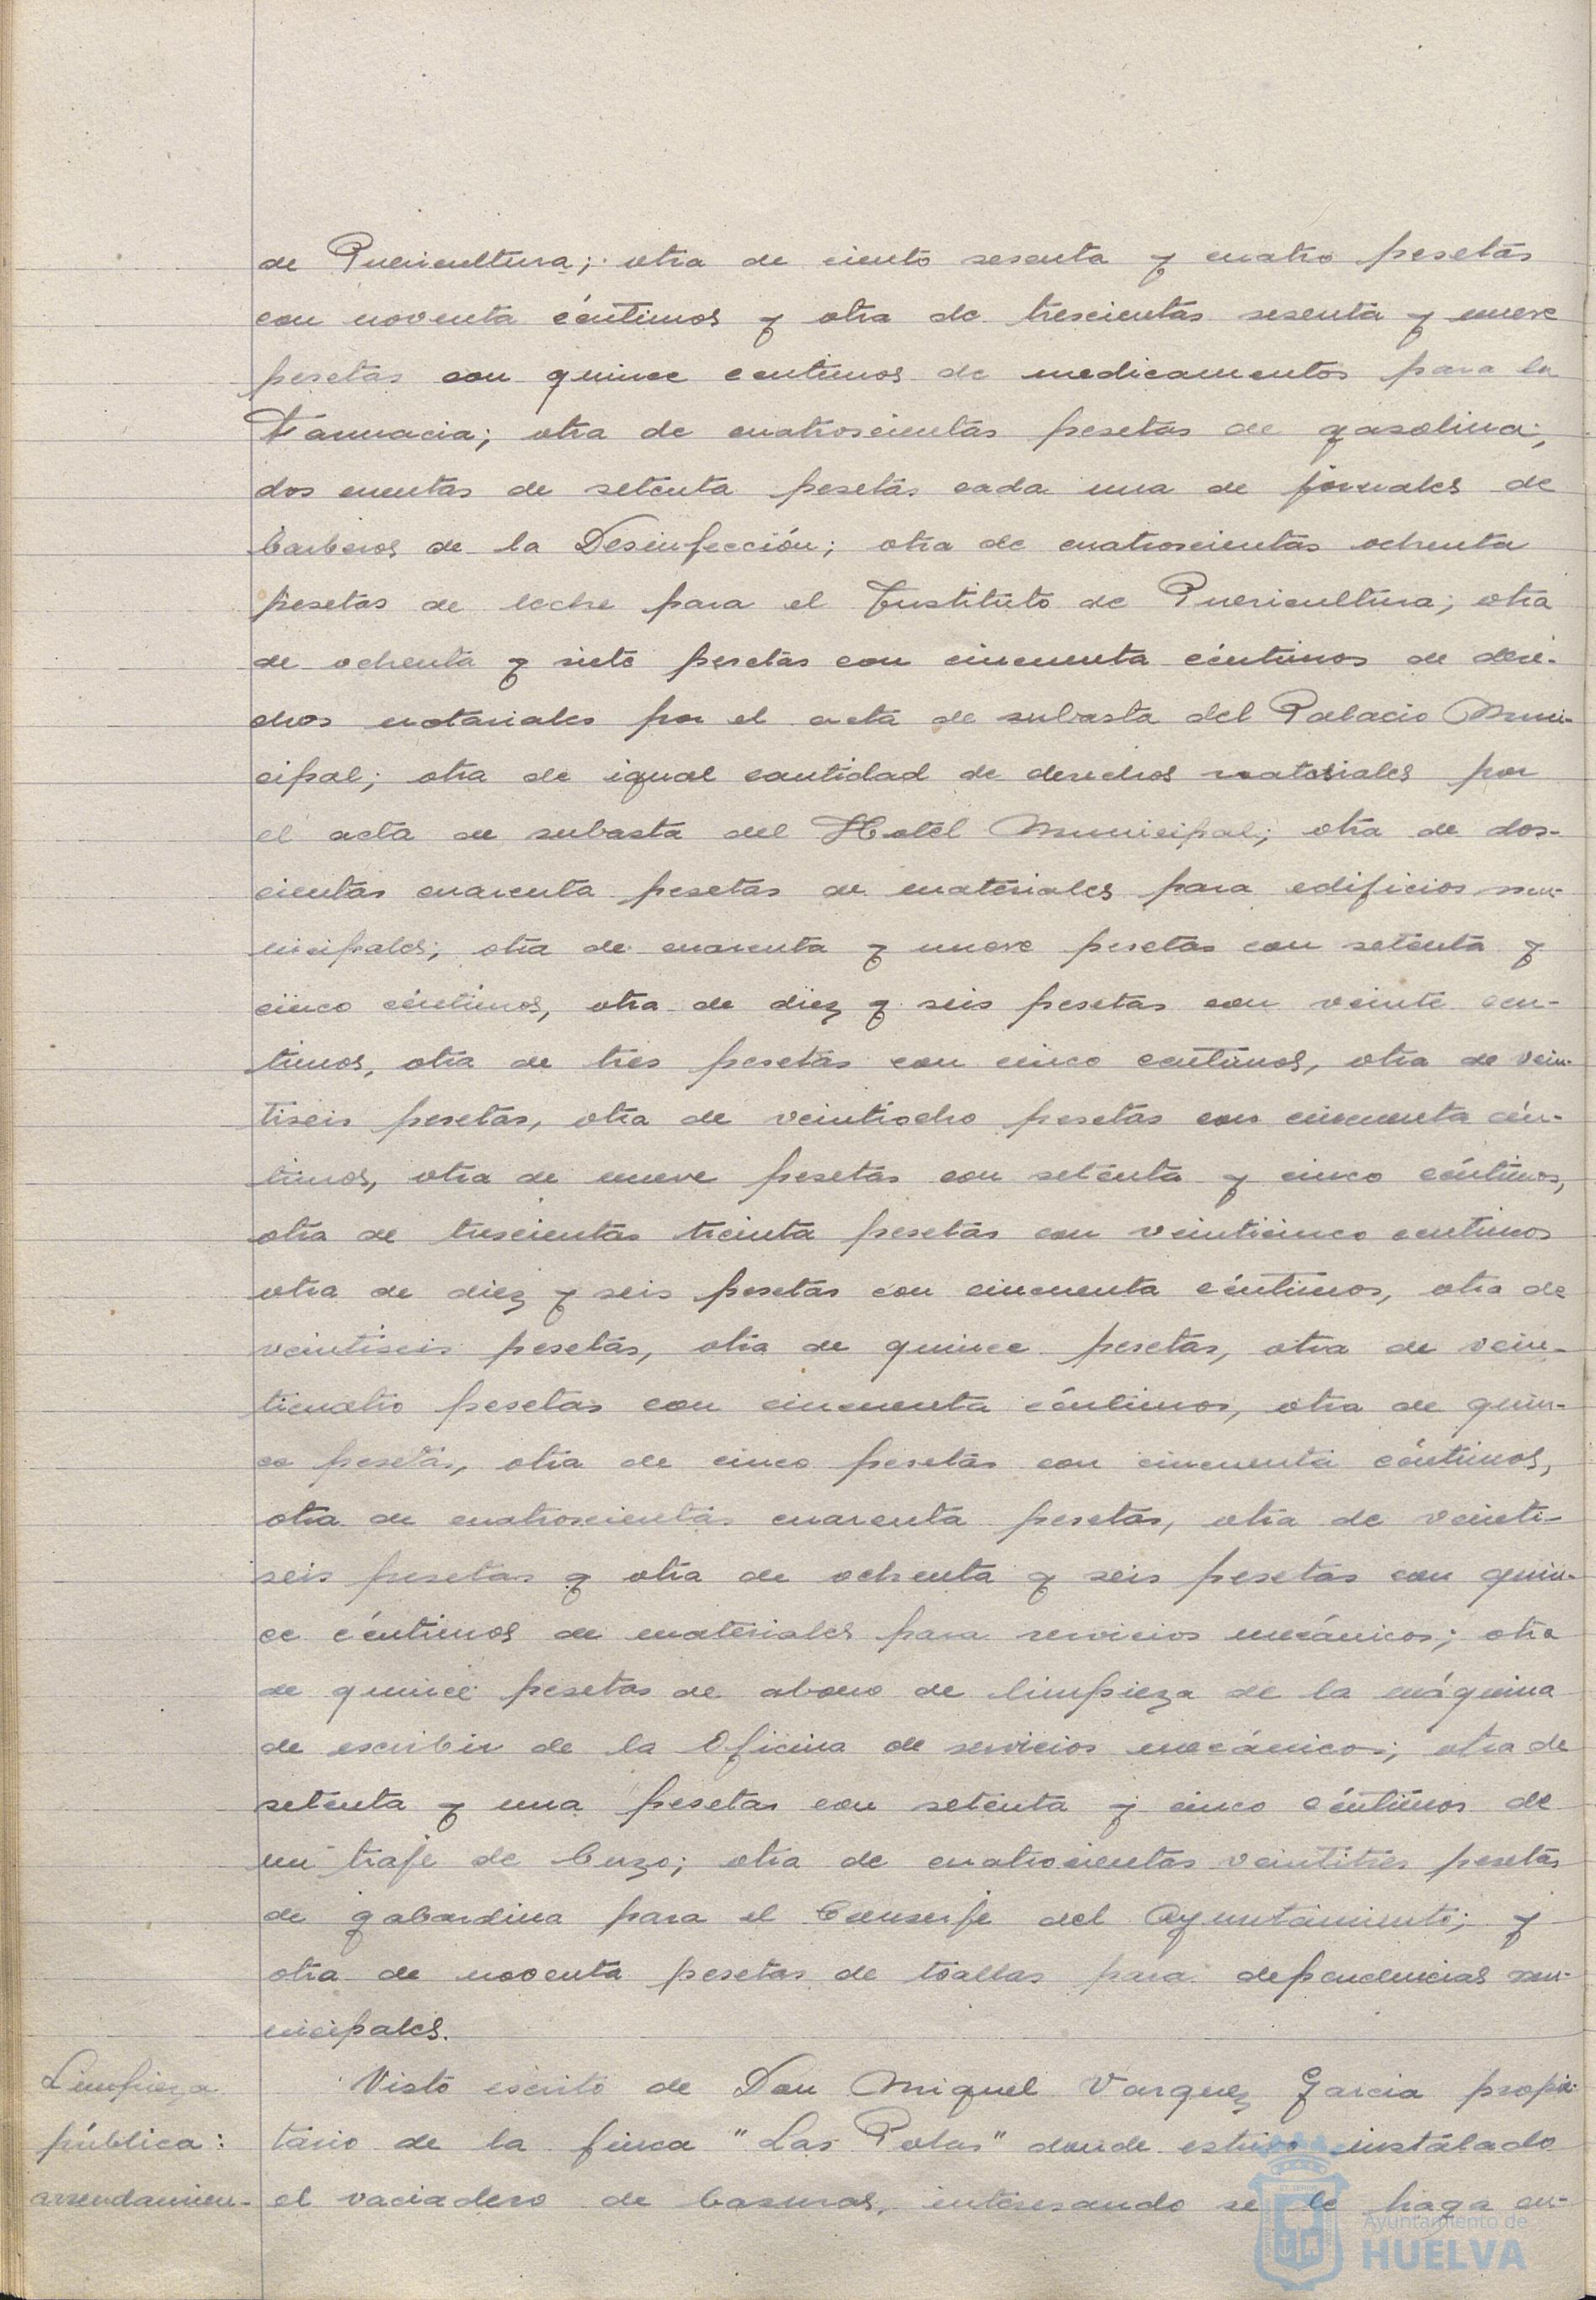 de Puericultura; otra de ciento sesenta y cuatro pesetas
con noventa céntimos y otra de trescientas sesenta y nueve
pesetas con quince centimos de medicamentos para la
Farmacia; otra de cuatroscientas pesetas de gasolina;
dos cuentas de setenta pesetas cada una de jornales de
barberos de la Desinfección; otra de cuatroscientas ochenta
pesetas de leche para el Instituto de Puericultura; otra
de ochenta y siete pesetas con cincuenta céntimos de dere-
chos notariales por el acta de subasta del Palacio Muni-
cipal; otra de igual cantidad de derechos notariales por
el acta de subasta del Hotel Municipal; otra de dos-
cientas cuarenta pesetas de materiales para edificios mu-
nicipales; otra de cuarenta y nueve pesetas con setenta y
cinco céntimos, otra de diez y seis pesetas con veinte cen-
timos, otra de tres pesetas con cinco centimos, otra de vein-
tiseis pesetas, otra de veintiocho pesetas con cincuenta cén-
timos, otra de nueve pesetas con setenta y cinco céntimos,
otra de trescientas treinta pesetas con veinticinco centimos
otra de diez y seis pesetas con cincuenta céntimos, otra de
veintiseis pesetas, otra de quince pesetas, otra de vein-
ticuatro pesetas con cincuenta céntimos, otra de quin-
ce pesetas, otra de cinco pesetas con cincuenta céntimos,
otra de cuatroscientas cuarenta pesetas, otra de veinti-
seis pesetas y otra de ochenta y seis pesetas con quin-
ce céntimos de materiales para servicios mecánicos; otra
de quince pesetas de abono de limpieza de la máquina
de escribir de la Oficina de servicios mecánicos; otra de
setenta y una pesetas con setenta y cinco céntimos de
un traje de buzo; otra de cuatrocientas veintitres pesetas
de gabardina para el Conserje del Ayuntamiento; y
otra de noventa pesetas de toallas para dependencias mu-
nicipales.
Limpieza Visto escrito de Don Miguel Vazquez Garcia propie-
pública: tario de la finca "Las Potas" donde estuvo instalado
arrendamien- el vaciadero de basuras, interesando se le haga en-
Ayuntamiento de
HUELVA